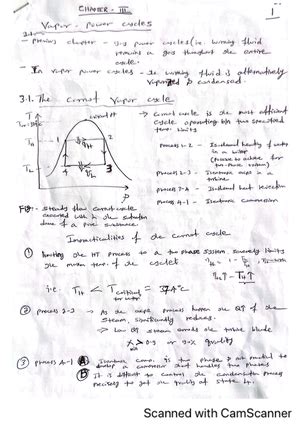 CHAPTER - III
1
Vapor - power cycles
- previous chapter - gas power cycles (i.e. working fluid
remains a gas throughout the entire
cycle.
- In vapor power cycles - the working fluid is alternatively
vaporized & condensed.
3.1. The Carnot Vapor cycle
T
critical pt
TH
TL
1
2
3
4
→ Carnot cycle is the most efficient
cycle operating b/n two specified
temp. limits
Process 1-2 - Isothermal heating of water
in a boiler
Process 2-3 - Isentropic exp in a
turbine
Process 3-4 - Isothermal heat rejection
Process 4-1 - Isentropic compression
Fig:- steady flow carnot cycle
executed with in the saturation
dome of a pure substance.
Impracticalities of the carnot cycle
① limiting the HT process to a two phase system severely limits
the max tem. of the cycle
i.e. TH < Tcritical for water 374°C
② process 2-3 → As the exp process lowers the qlt of the
steam, significantly reduces.
→ low qlt steam erodes the turbine blade
x > 0.9 or 90% quality
③ process 4-1 Ⓐ Isentropic comp. is two phase & not practical to
develop a compressor that handles two phases
Ⓑ It is difficult to control the condensation process
precisely to get the quality at state 4.
Scanned with CamScanner